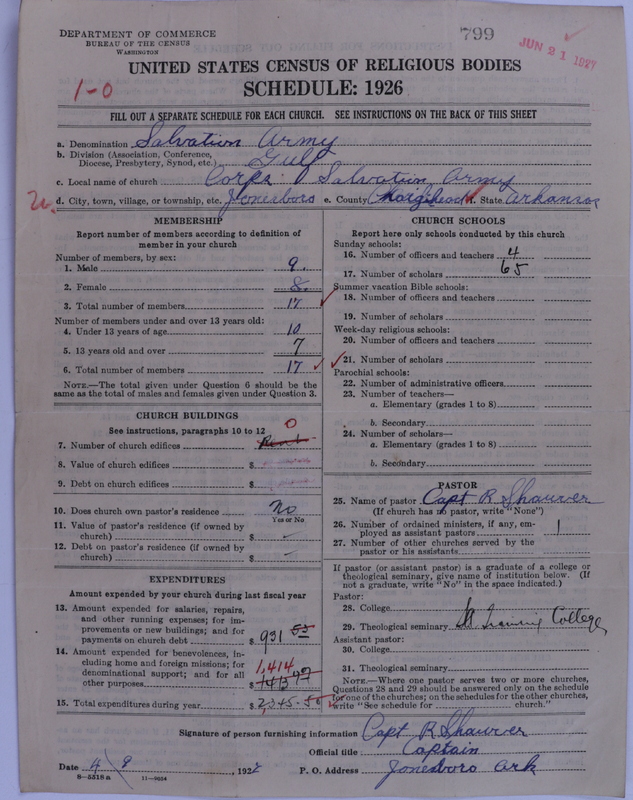 DEPARTMENT OF COMMERCE
BUREAU OF THE CENSUS
WASHINGTON
799
JUN 21 1927
UNITED STATES CENSUS OF RELIGIOUS BODIES
SCHEDULE: 1926
1-0
FILL OUT A SEPARATE SCHEDULE FOR EACH CHURCH. SEE INSTRUCTIONS ON THE BACK OF THIS SHEET
a. Denomination Salvation Army
b. Division (Association, Conference,
Diocese, Presbytery, Synod, etc.) Gulf
c. Local name of church Corps Salvation Army
d. City, town, village, or township, etc. Jonesboro e. County f. State Arkansas
MEMBERSHIP
Report number of members according to definition of
member in your church
Number of members, by sex:
1. Male 9.
2. Female 8.
3. Total number of members 17
Number of members under and over 13 years old:
4. Under 13 years of age 10
5. 13 years old and over 7
6. Total number of members 17
NOTE.—The total given under Question 6 should be
same as the total of males and females given under Question 3.
CHURCH BUILDINGS
See instructions, paragraphs 10 to 12
7. Number of church edifices 0
8. Value of church edifices $
9. Debt on church edifices $
10. Does church own pastor's residence No
Yes or No
11. Value of pastor's residence (if owned by
church) $
12. Debt on pastor's residence (if owned by
church) $
EXPENDITURES
Amount expended by your church during last fiscal year
13. Amount expended for salaries, repairs,
and other running expenses; for im-
provements or new buildings; and for
payments on church debt $ 931 53
14. Amount expended for benevolences, in-
cluding home and foreign missions; for
denominational support; and for all
other purposes $ 1,414 1413 97
15. Total expenditures during year $ 2345.50
CHURCH SCHOOLS
Report here only schools conducted by this church
Sunday schools:
16. Number of officers and teachers 4
17. Number of scholars 65
Summer vacation Bible schools:
18. Number of officers and teachers
19. Number of scholars
Week-day religious schools:
20. Number of officers and teachers
21. Number of scholars
Parochial schools:
22. Number of administrative officers
23. Number of teachers—
a. Elementary (grades 1 to 8)
b. Secondary
24. Number of scholars—
a. Elementary (grades 1 to 8)
b. Secondary
PASTOR
25. Name of pastor Capt R Shauver
(If church has no pastor, write "None")
26. Number of ordained ministers, if any, em-
ployed as assistant pastors 1
27. Number of other churches served by the
pastor or his assistants
If pastor (or assistant pastor) is a graduate of a college or
theological seminary, give name of institution below. (If
not a graduate, write "No" in the space indicated.)
Pastor:
28. College
29. Theological seminary Training College
Assistant pastor:
30. College
31. Theological seminary
NOTE.—Where one pastor serves two or more churches,
Questions 28 and 29 should be answered only on the schedule
for one of the churches; on the schedules for the other churches,
write "See schedule for church."
Signature of person furnishing information Capt R Shauver
Official title Captain
Date 4 9, 1927 P. O. Address Jonesboro Ark
8—5518 a 11—9564